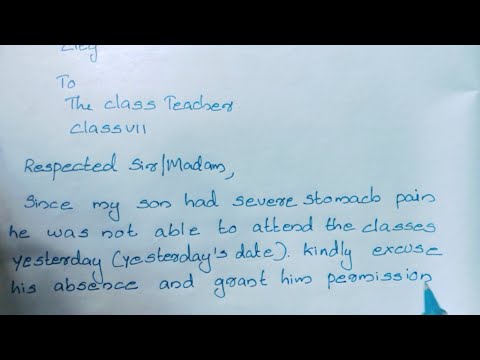 City
To
The class Teacher
Class VII
Respected Sir/Madam,
Since my son had severe stomach pain
he was not able to attend the classes
yesterday (yesterday's date). Kindly excuse
his absence and grant him permission